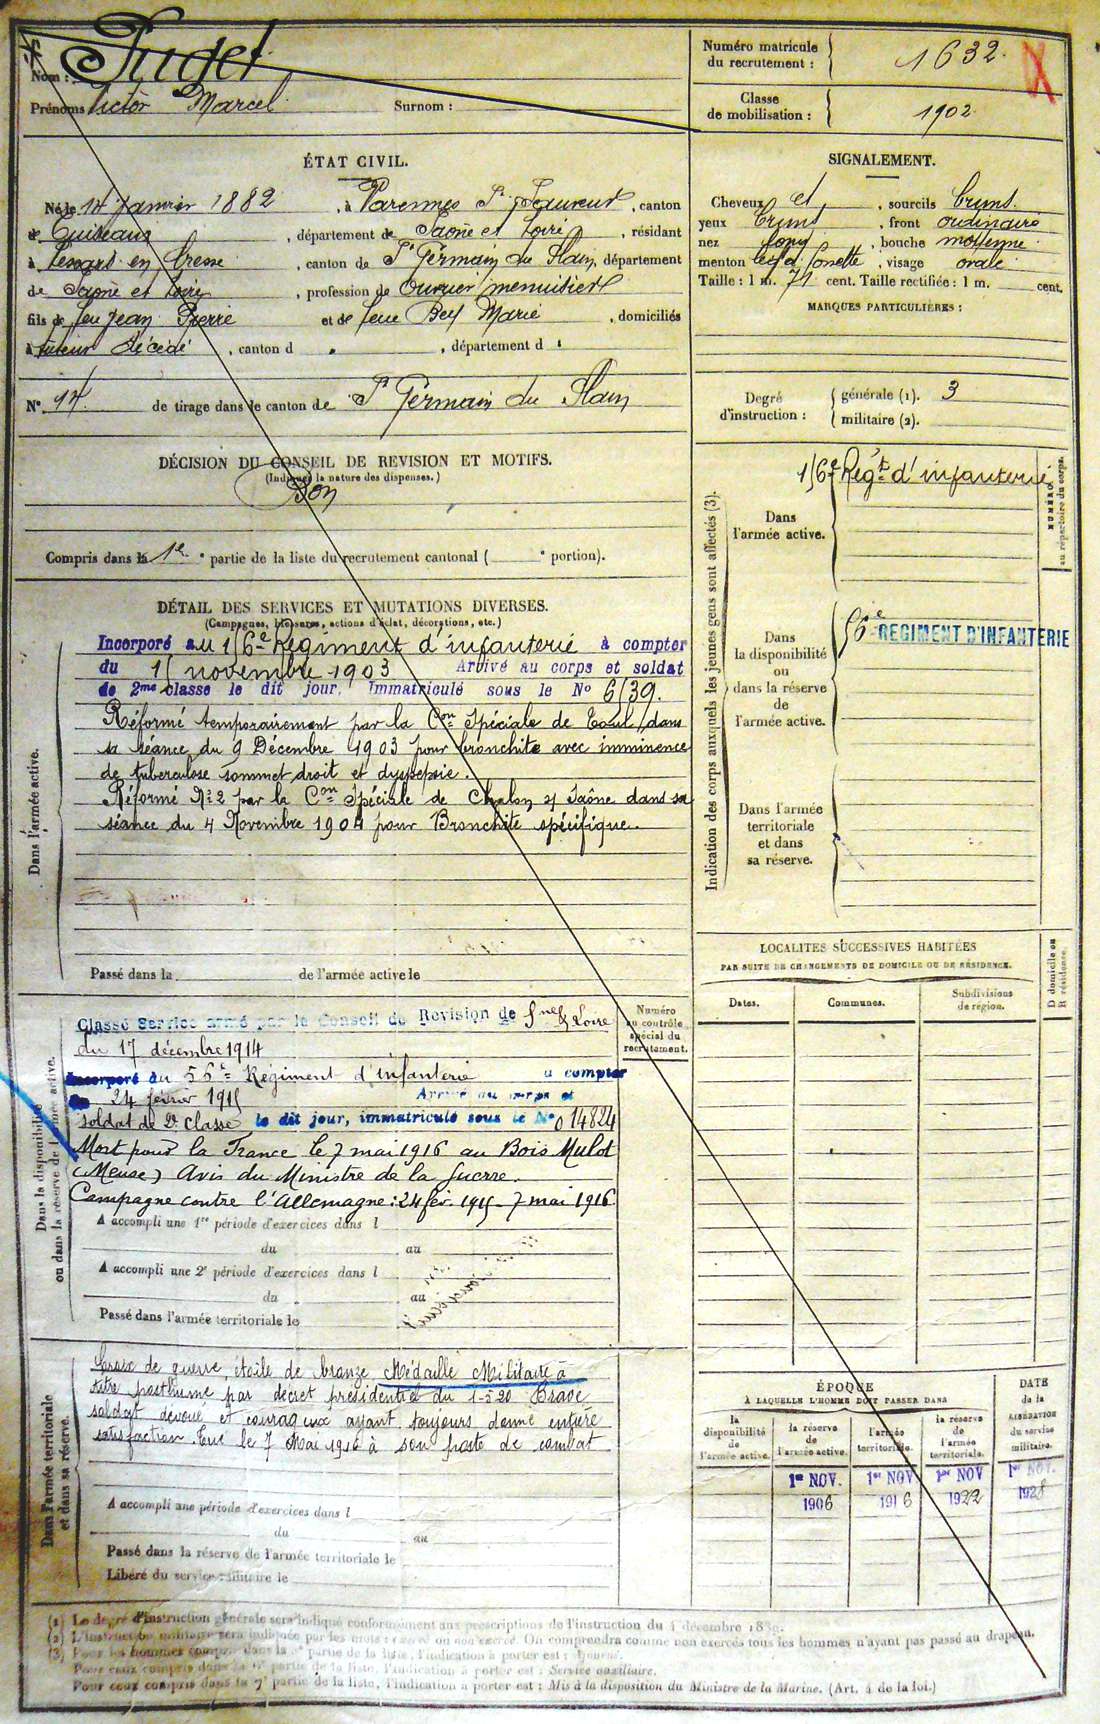 Nom : Puget
Prénoms Victor Marcel Surnom :
Numéro matricule du recrutement : 1632.
Classe de mobilisation : 1902
ÉTAT CIVIL.
Né le 14 Janvier 1882, à Varennes St Sauveur, canton
de Cuiseaux, département de Saône et Loire, résidant
à Lessard en Bresse, canton de St Germain du Plain, département
de Saône et Loire, profession de Ouvrier menuisier
fils de feu Jean Pierre et de feue Bey Marie, domiciliés
à tuteur décédé, canton d , département d
N° 14 de tirage dans le canton de St Germain du Plain
SIGNALEMENT.
Cheveux et , sourcils bruns.
yeux bruns , front ordinaire
nez long , bouche moyenne
menton à fossette , visage ovale
Taille : 1 m. 71 cent. Taille rectifiée : 1 m. cent.
MARQUES PARTICULIÈRES :
Degré d'instruction : générale (1). 3
militaire (2).
DÉCISION DU CONSEIL DE REVISION ET MOTIFS.
(Indiquer la nature des dispenses.)
Bon
Compris dans la 1re partie de la liste du recrutement cantonal ( portion).
Indication des corps auxquels les jeunes gens sont affectés (3).
NUMÉRO au répertoire du corps.
156e Régt d'infanterie
Dans l'armée active.
Dans la disponibilité ou dans la réserve de l'armée active.
56e REGIMENT D'INFANTERIE
Dans l'armée territoriale et dans sa réserve.
DÉTAIL DES SERVICES ET MUTATIONS DIVERSES.
(Campagnes, blessures, actions d'éclat, décorations, etc.)
Dans l'armée active.
Incorporé au 156e Régiment d'infanterie à compter
du 15 novembre 1903 Arrivé au corps et soldat
de 2me classe le dit jour, Immatriculé sous le No 6539.
Réformé temporairement par la Con Spéciale de Toul, dans
sa séance du 9 Décembre 1903 pour bronchite avec imminence
de tuberculose sommet droit et dyspepsie.
Réformé No 2 par la Con Spéciale de Chalon s/ Saône dans sa
séance du 4 Novembre 1904 pour Bronchite spécifique.
Passé dans la de l'armée active le
LOCALITES SUCCESSIVES HABITÉES
PAR SUITE DE CHANGEMENTS DE DOMICILE OU DE RÉSIDENCE.
D domicile ou R résidence.
Dates. Communes. Subdivisions de région.
Dans la disponibilité ou dans la réserve de l'armée active.
Numéro au contrôle spécial du recrutement.
Classé Service armé par le Conseil de Revision de Sne & Loire
du 17 décembre 1914
Incorporé au 56e Régiment d'infanterie à compter
du 24 février 1915 Arrivé au corps et
soldat de 2e classe le dit jour, immatriculé sous le No 014824
Mort pour la France le 7 mai 1916 au Bois Mulot
(Meuse) Avis du Ministre de la Guerre.
Campagne contre l'Allemagne : 24 fév. 1915 - 7 mai 1916
A accompli une 1re période d'exercices dans l
du au
A accompli une 2e période d'exercices dans l
du au
Passé dans l'armée territoriale le
Dans l'armée territoriale et dans sa réserve.
Croix de guerre, étoile de bronze, Médaille Militaire à
titre posthume par décret présidentiel du 1-5-20 Brave
soldat dévoué et courageux ayant toujours donné entière
satisfaction. Tué le 7 Mai 1916 à son poste de combat
A accompli une période d'exercices dans l
du au
Passé dans la réserve de l'armée territoriale le
Libéré du service militaire le
ÉPOQUE
À LAQUELLE L'HOMME DOIT PASSER DANS
DATE de la LIBÉRATION du service militaire.
la disponibilité de l'armée active.
la réserve de l'armée active.
l'armée territoriale.
la réserve de l'armée territoriale.
1er NOV. 1er NOV 1er NOV 1er NOV.
1906 1916 1922 1928
(1) Le degré d'instruction générale sera indiqué conformément aux prescriptions de l'instruction du 4 décembre 1889.
(2) L'instruction militaire sera indiquée par les mots : exercé ou non exercé. On comprendra comme non exercés tous les hommes n'ayant pas passé au drapeau.
(3) Pour les hommes compris dans la partie de la liste, l'indication à porter est : Ajourné.
Pour ceux compris dans la partie de la liste, l'indication à porter est : Service auxiliaire.
Pour ceux compris dans la 7e partie de la liste, l'indication à porter est : Mis à la disposition du Ministre de la Marine. (Art. 4 de la loi.)